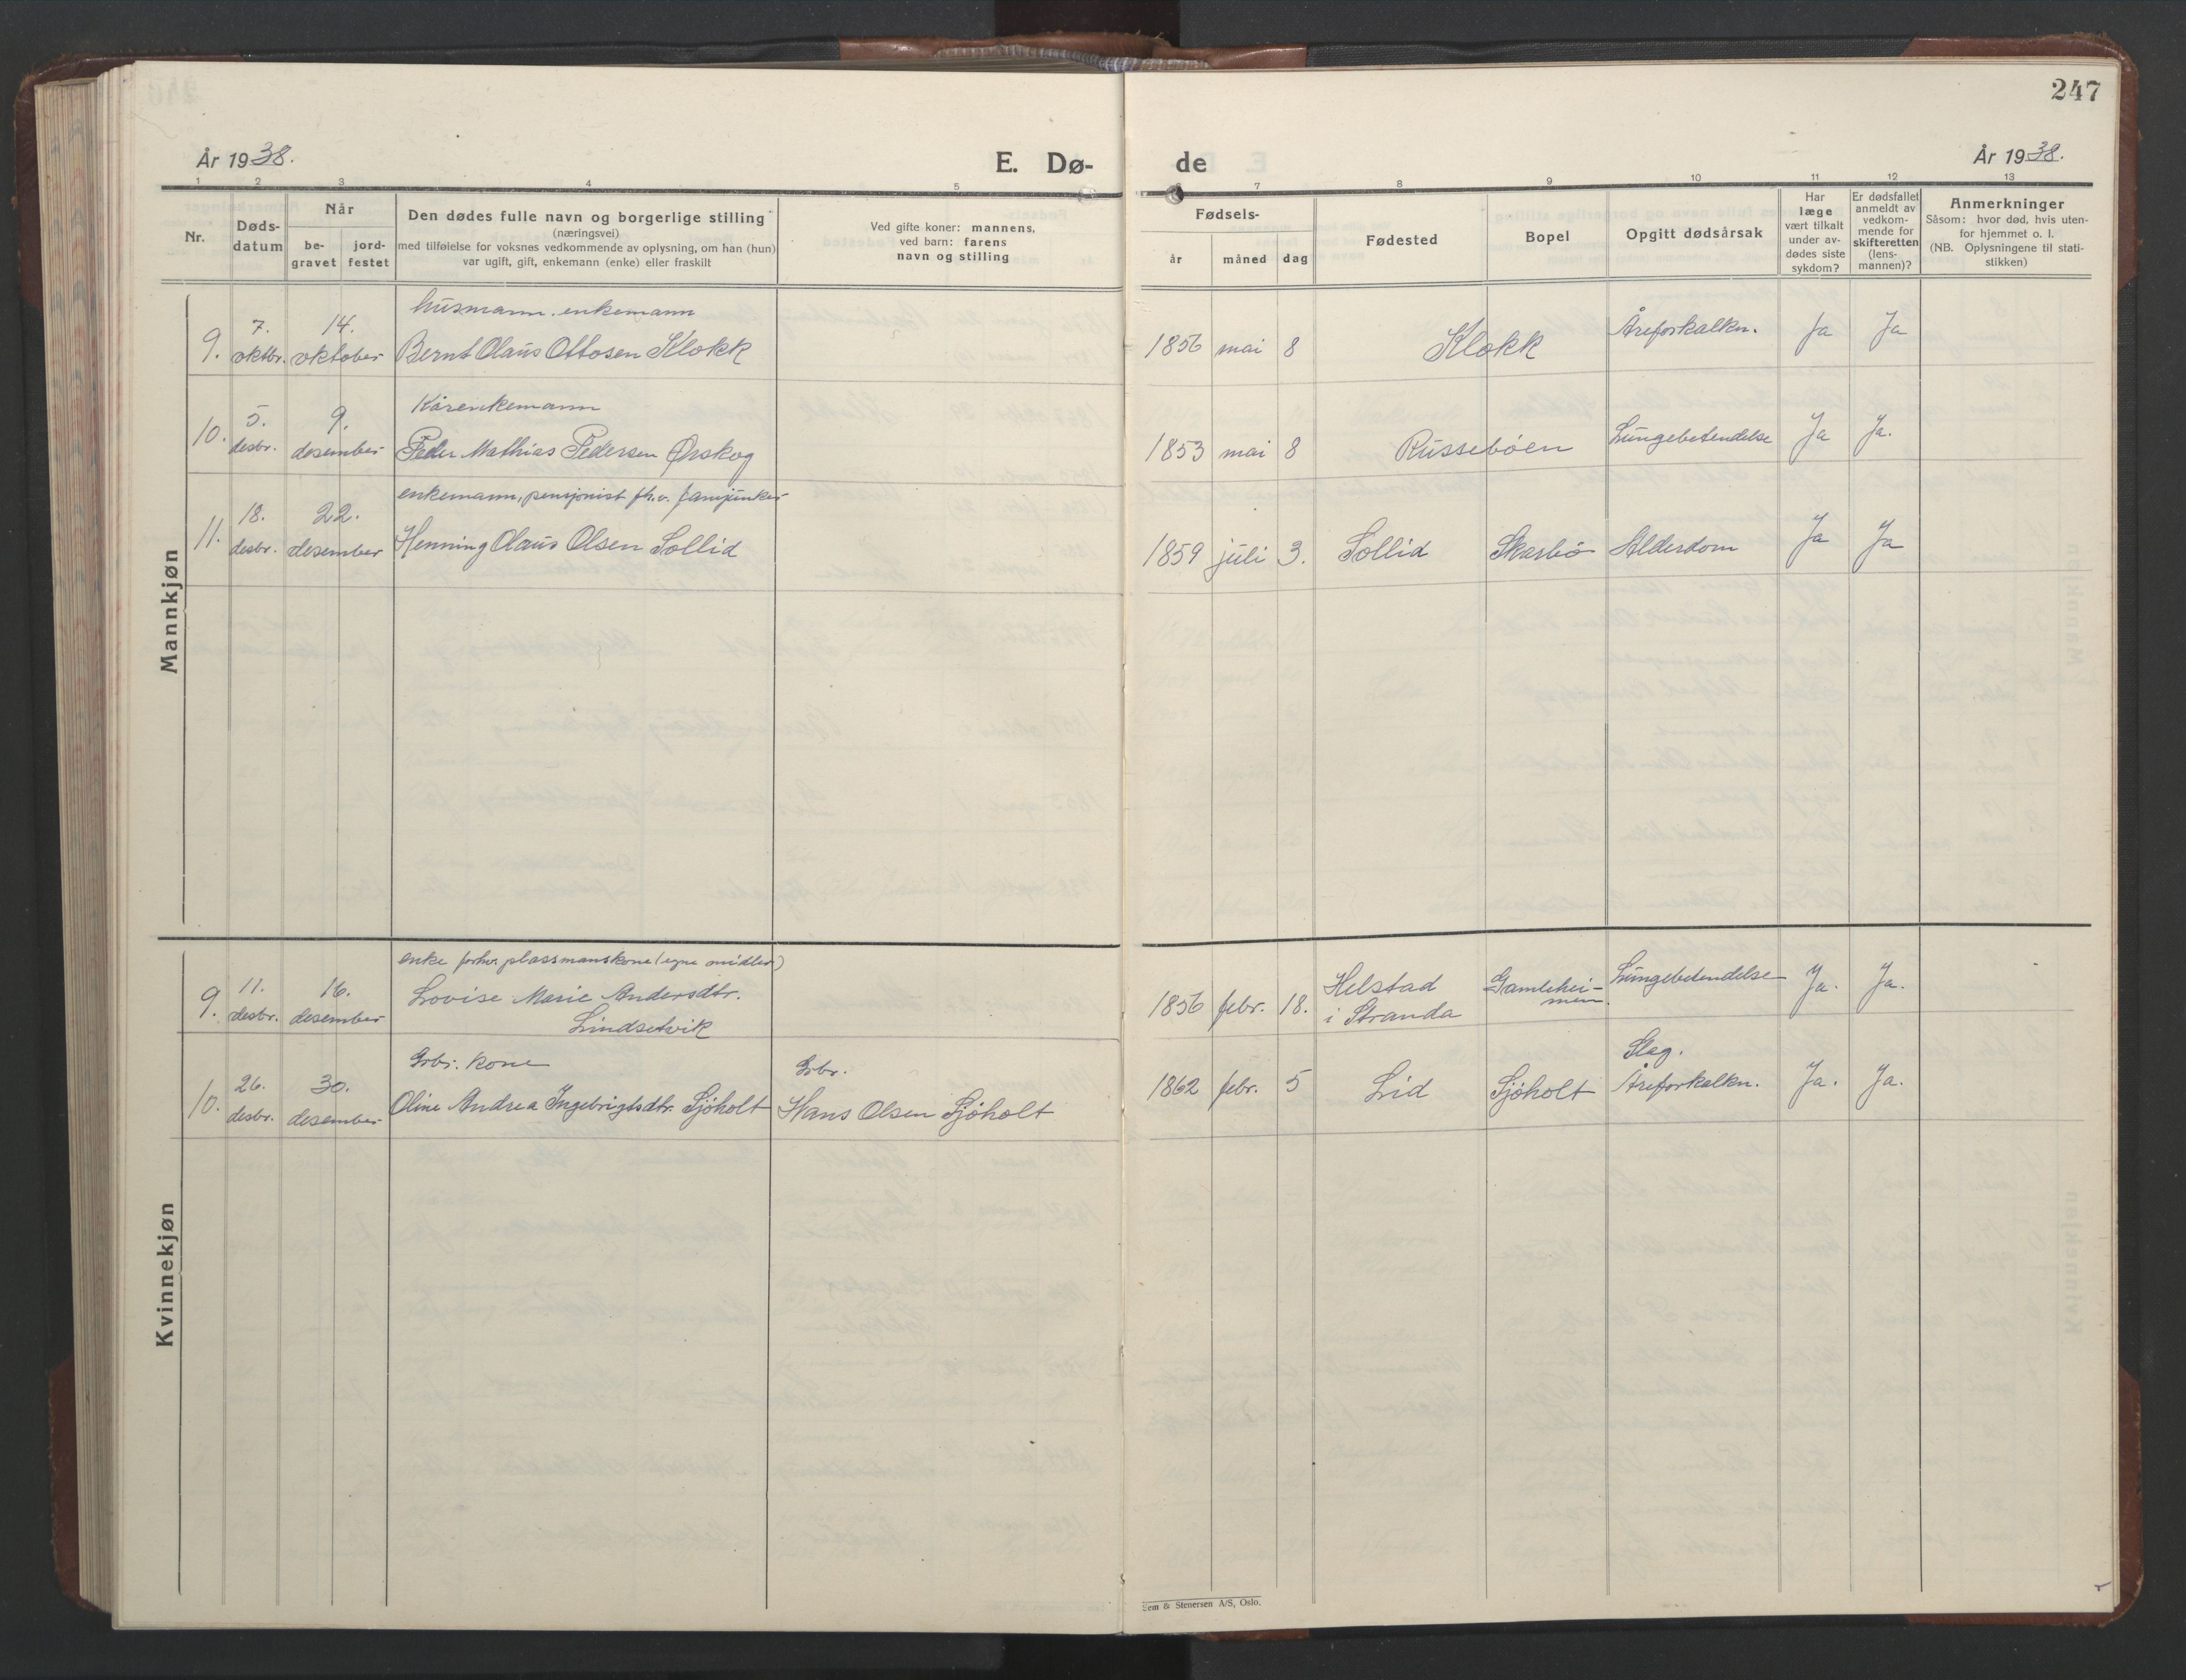 247
År 1938.
E. Dø-
de
År 1938.
1 2 3 4 5 6 7 8 9 10 11 12 13
Nr.
Døds-
datum
Når
be-
gravet
jord-
festet
Den dødes fulle navn og borgerlige stilling
(næringsvei)
med tilføielse for voksnes vedkommende av oplysning, om han (hun)
var ugift, gift, enkemann (enke) eller fraskilt
Ved gifte koner: mannens,
ved barn: farens
navn og stilling
Fødsels-
år
måned
dag
Fødested
Bopel
Opgitt dødsårsak
Har
læge
vært tilkalt
under av-
dødes siste
sykdom?
Er dødsfallet
anmeldt av
vedkom-
mende for
skifteretten
(lens-
mannen)?
Anmerkninger
Såsom: hvor død, hvis uten-
for hjemmet o. l.
(NB. Oplysningene til stati-
stikken)
Mannkjøn
husmann. enkemann
9. 7. oktbr. 14. oktober Bernt Olaus Ottosen Klokk 1856 mai 8 Klokk Åreforkalkn. Ja Ja
Kårenkemann
10. 5. desbr. 9. desember Peder Mathias Pedersen Ørskog 1853 mai 8 Russebøen Lungebetendelse Ja Ja.
enkemann, pensjonist fh.v. fanejunker
11. 18. desbr. 22. desember Henning Olaus Olsen Sollid 1859 juli 3. Sollid Skarbø Alderdom Ja Ja
Kvinnekjøn
enke forhv. plassmanskone (egne midler)
9. 11. desbr. 16. desember Lovise Marie Andersdtr.
Lindsetvik
1856 febr. 18. Helstad
i Stranda
Gamlehei-
men.
Lungebetendelse Ja. Ja.
Grbr. kone
Grbr.
Slag.
10. 26. desbr. 30. desember Oline Andrea Ingebrigtsdtr. Sjøholt Hans Olsen Sjøholt 1862 febr. 5 Lid Sjøholt Åreforkalkn. Ja. Ja.
Sem & Stenersen A/S, Oslo.